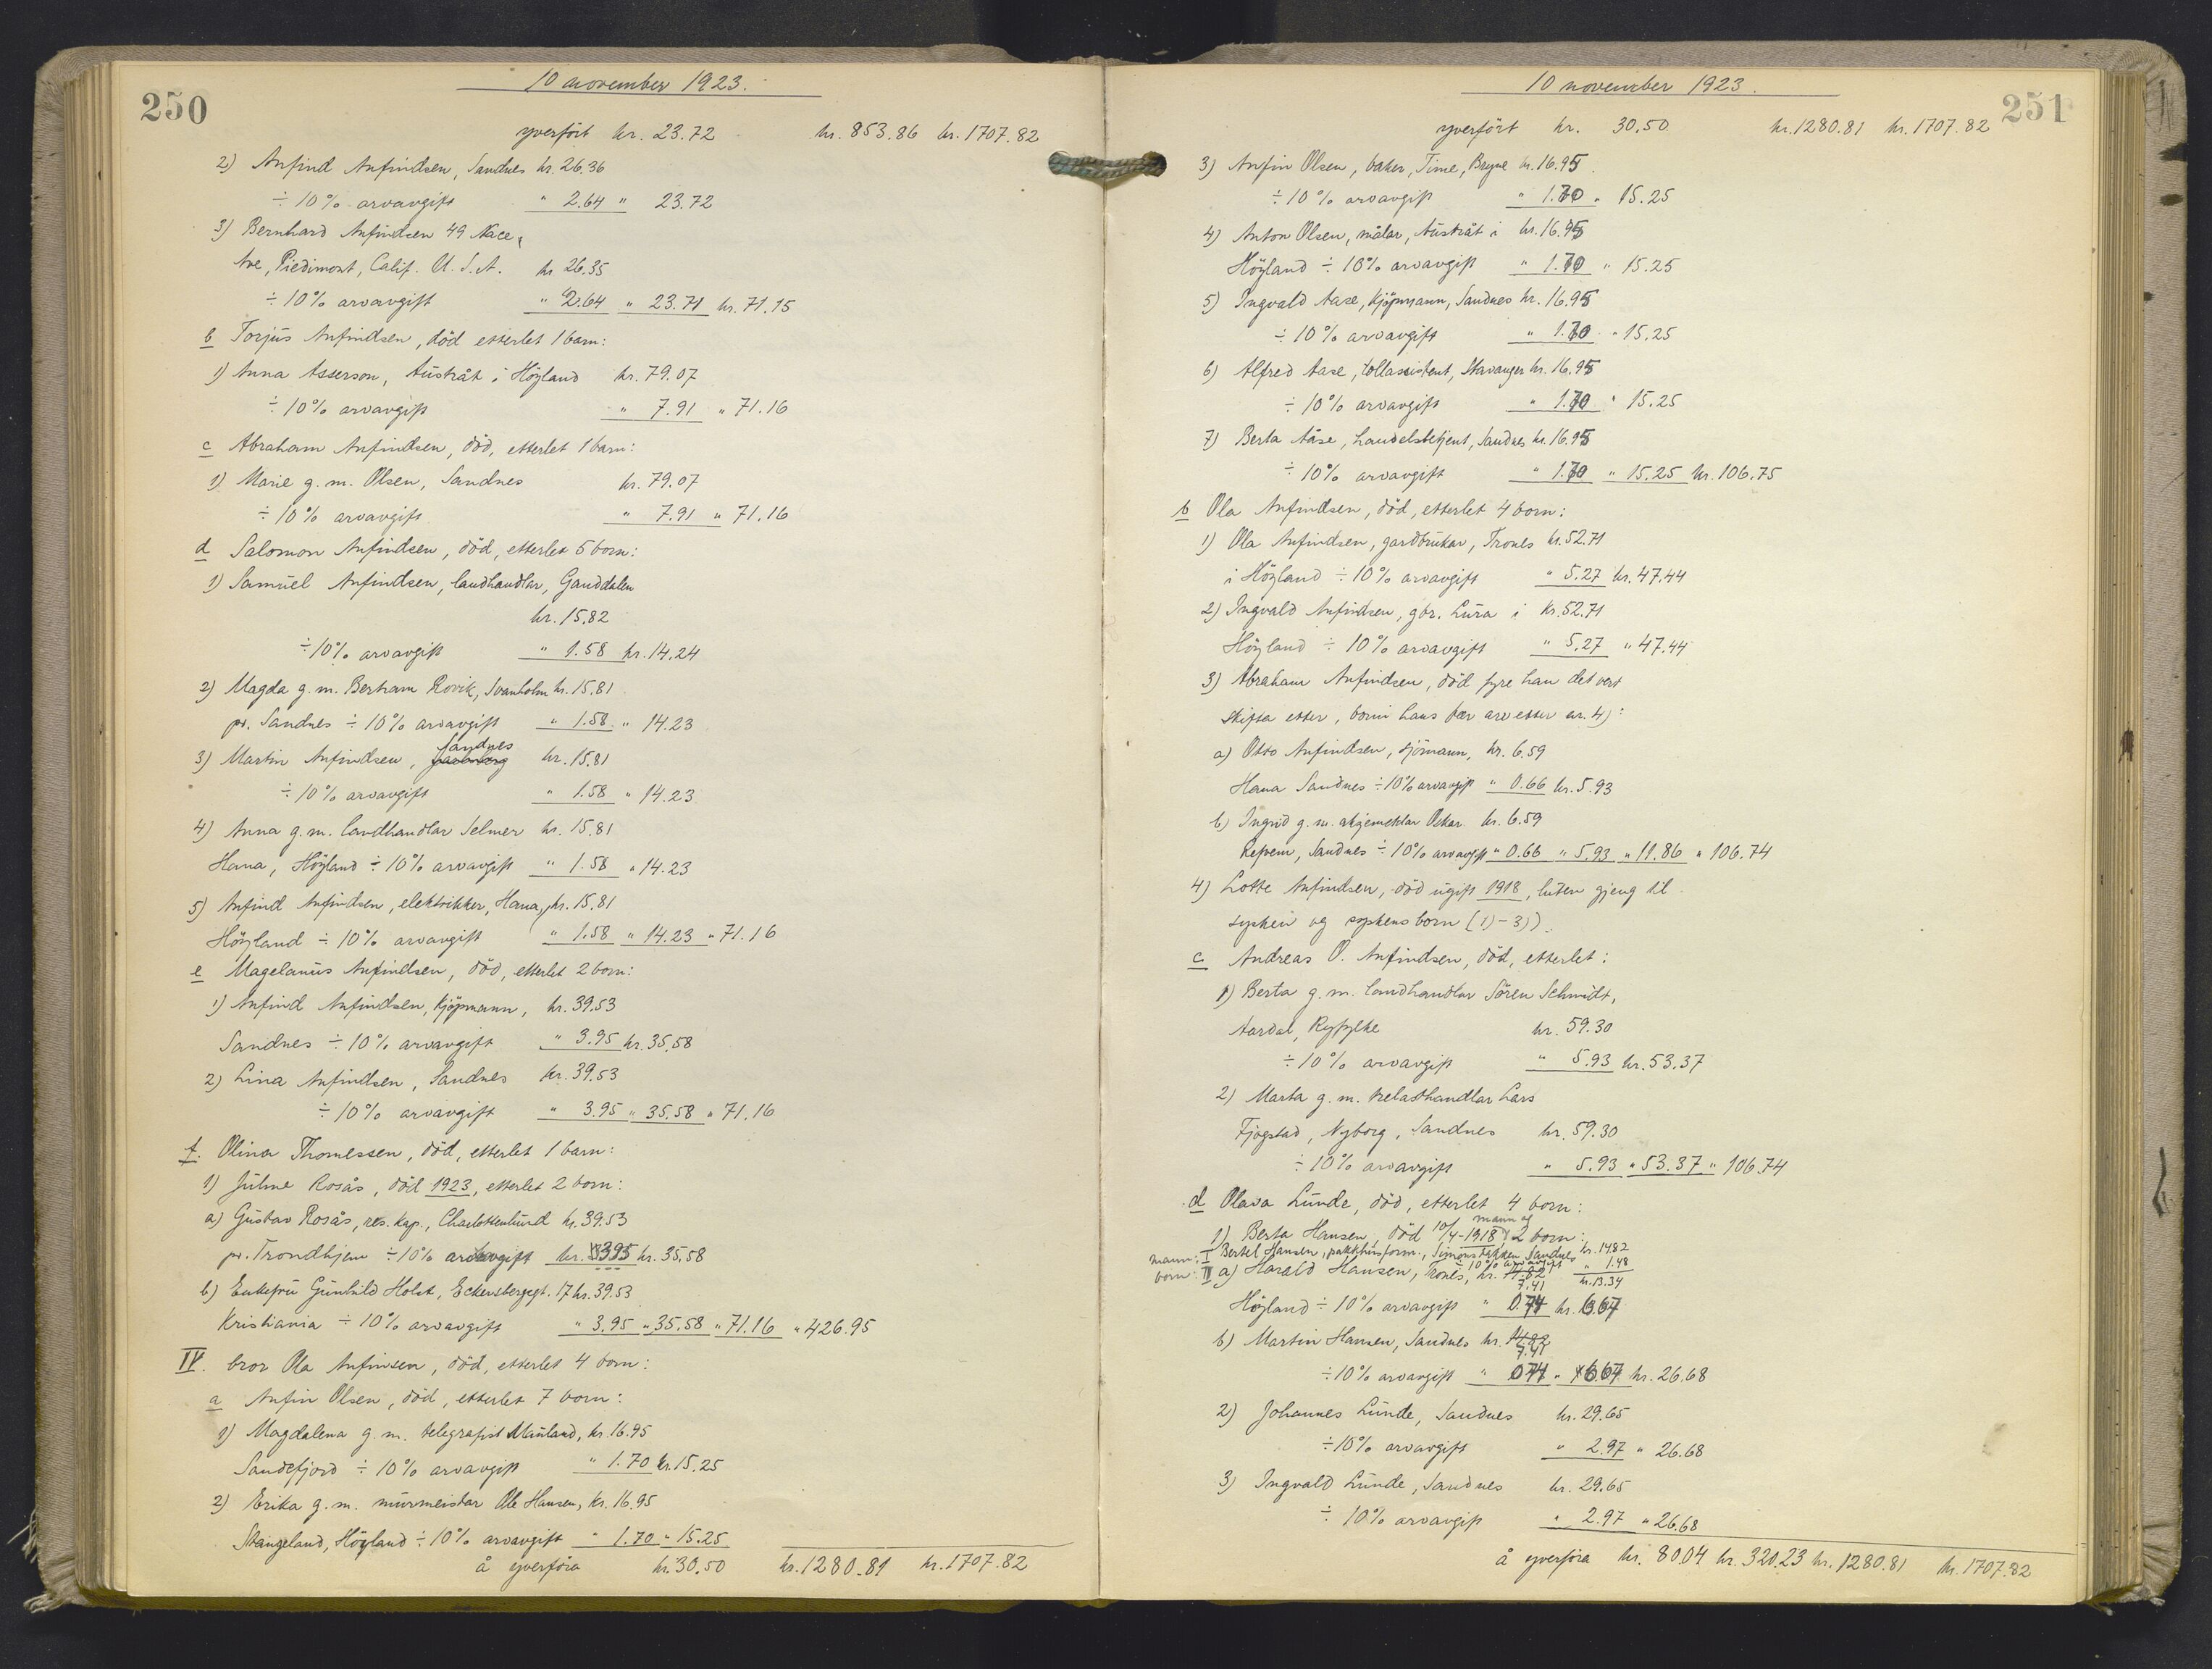 250
10 november 1923.
yverført kr. 23.72 kr. 853.86 kr. 1707.82
2) Anfind Anfindsen, Sandnes kr. 26.36
÷ 10% arvavgift " 2.64 " 23.72
3) Bernhard Anfindsen 49 Nace
Ave, Piedimont, Calif. U.S.A. kr 26.35
÷ 10% arvavgift " 2.64 " 23.71 kr. 71.15
b Torjus Anfindsen, død etterlet 1 barn:
1) Anna Asserson, Austråt i Høyland kr. 79.07
÷ 10% arvavgift " 7.91 " 71.16
c Abraham Anfindsen, død, etterlet 1 barn:
1) Marie g.m. Olsen, Sandnes kr. 79.07
÷ 10% arvavgift " 7.91 " 71.16
d Salomon Anfindsen, død, etterlet 5 born:
1) Samuel Anfindsen, landhandlar, Ganddalen
kr. 15.82
÷ 10% arvavgift " 1.58 kr. 14.24
2) Magda g.m. Bertram Rovik, Svanholm kr. 15.81
pr. Sandnes ÷ 10% arvavgift " 1.58 " 14.23
3) Martin Anfindsen, Sandnes kr. 15.81
÷ 10% arvavgift " 1.58 " 14.23
4) Anna g.m. landhandlar Selmer kr. 15.81
Hana, Høyland ÷ 10% arvavgift " 1.58 " 14.23
5) Anfind Anfindsen, elektrikker, Hana, kr. 15.81
Høyland ÷ 10% arvavgift " 1.58 " 14.23 " 71.16
e Magelanus Anfindsen, død, etterlet 2 born:
1) Anfind Anfindsen, kjøpmann, kr. 39.53
Sandnes ÷ 10% arvavgift " 3.95 kr. 35.58
2) Lina Anfindsen, Sandnes kr. 39.53
÷ 10% arvavgift " 3.95 " 35.58 " 71.16
f. Olina Thomessen, død, etterlet 1 barn:
1) Julme Rosås, død 1923, etterlet 2 born:
a) Gustav Rosås, res. kap., Charlottenlund kr. 39.53
pr. Trondhjem ÷ 10% arvavgift kr. 3.95 kr. 35.58
b) Enkefru Gunhild Holst, Eckersbergsgt. 17 kr. 39.53
Kristiania ÷ 10% arvavgift " 3.95 " 35.58 " 71.16 " 426.95
IV. bror Ola Anfinsen, død, etterlet 4 born:
a Anfin Olsen, død, etterlet 7 born:
1) Magdalena g.m. telegrafist Mauland, kr. 16.95
Sandefjord ÷ 10% arvavgift " 1.70 kr. 15.25
2) Erika g.m. murmeistar Ole Hansen, kr. 16.95
Stangeland, Høyland ÷ 10% arvavgift " 1.70 " 15.25
å yverføra kr. 30.50 kr. 1280.81 kr. 1707.82
251
10 november 1923.
yverført kr. 30.50 kr. 1280.81 kr. 1707.82
3) Anfin Olsen, baker, Time, Bryne kr. 16.95
÷ 10% arvavgift " 1.70 " 15.25
4) Anton Olsen, målar, Austråt i kr. 16.95
Høyland ÷ 10% arvavgift " 1.70 " 15.25
5) Ingvald Aase, kjøpmann, Sandnes kr. 16.95
÷ 10% arvavgift " 1.70 " 15.25
6) Alfred Aase, tollassistent, Stavanger kr. 16.95
÷ 10% arvavgift " 1.70 " 15.25
7) Berta Åse, handelsbetjent, Sandnes kr. 16.95
÷ 10% arvavgift " 1.70 " 15.25 kr. 106.75
b Ola Anfindsen, død, etterlet 4 born:
1) Ola Anfindsen, gardbrukar, Trones kr. 52.71
i Høyland ÷ 10% arvavgift " 5.27 kr. 47.44
2) Ingvald Anfindsen, gbr. Lura i kr. 52.71
Høyland ÷ 10% arvavgift " 5.27 " 47.44
3) Abraham Anfindsen, død fyre han det vert
skifta etter, borni hans fær arv etter nr. 4):
a) Otto Anfindsen, sjømann, kr. 6.59
Hana Sandnes ÷ 10% arvavgift " 0.66 kr. 5.93
b) Ingrid g.m. Oskar kr. 6.59
Refvem, Sandnes ÷ 10% arvavgift " 0.66 " 5.93 " 11.86 " 106.74
4) Lotte Anfindsen, død ugift 1918, luten gjeng til
syskein og syskensborn (1)-3)).
c Andreas O. Anfindsen, død, etterlet:
1) Berta g.m. landhandlar Søren Schmidt,
Aardal, Ryfylke kr. 59.30
÷ 10% arvavgift " 5.93 kr. 53.37
2) Marta g.m. trelasthandlar Lars
Fjogstad, Nyborg, Sandnes kr. 59.30
÷ 10% arvavgift " 5.93 " 53.37 " 106.74
d Olava Lunde, død, etterlet 4 born:
1) Berta Hansen, død 10/4-1918 mann og 2 born:
mann: I Bertel Hansen, pakkhusform., Sandnes kr. 14.82
÷ 10% arvavgift " 1.48
kr. 13.34
born: II a) Harald Hansen, Trones, kr. 14.82 7.41
Høyland ÷ 10% arvavgift " 0.74 kr. 6.67
b) Martin Hansen, Sandnes kr. 14.82 7.41
÷ 10% arvavgift " 0.74 " 6.67 kr. 26.68
2) Johannes Lunde, Sandnes kr. 29.65
÷ 10% arvavgift " 2.97 " 26.68
3) Ingvald Lunde, Sandnes kr. 29.65
÷ 10% arvavgift " 2.97 " 26.68
å yverføra kr. 80.04 kr. 320.23 kr. 1280.81 kr. 1707.82